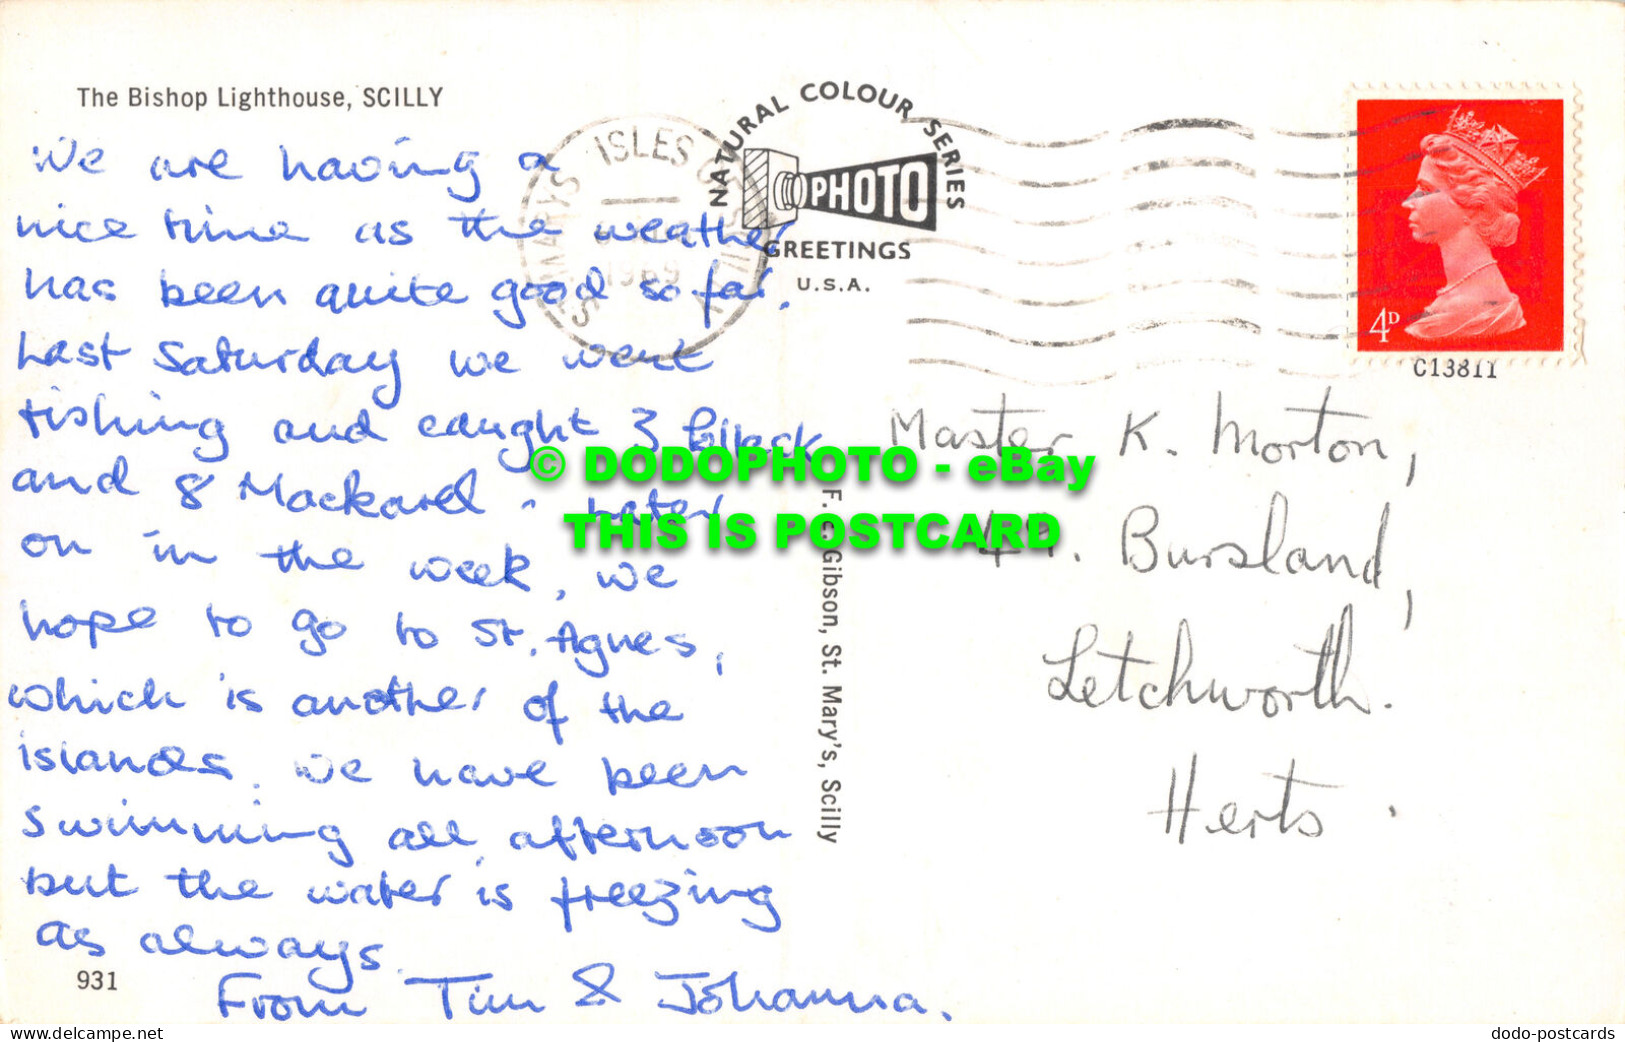 The Bishop Lighthouse, SCILLY
We are having a
nice time as the weather
has been quite good so far.
Last Saturday we went
fishing and caught 3 Pollack
and 8 Mackarel. Later
on in the week, we
hope to go to St. Agnes,
which is another of the
islands. We have been
swimming all afternoon
but the water is freezing
as always.
From Tim & Johanna.
931
ST. MARYS ISLES OF SCILLY
1969
NATURAL COLOUR SERIES
PHOTO
GREETINGS
U.S.A.
F. E. Gibson, St. Mary's, Scilly
4D
C13811
Master K. Morton,
Bursland,
Letchworth.
Herts.
© DODOPHOTO - eBay
THIS IS POSTCARD
www.delcampe.net
dodo-postcards